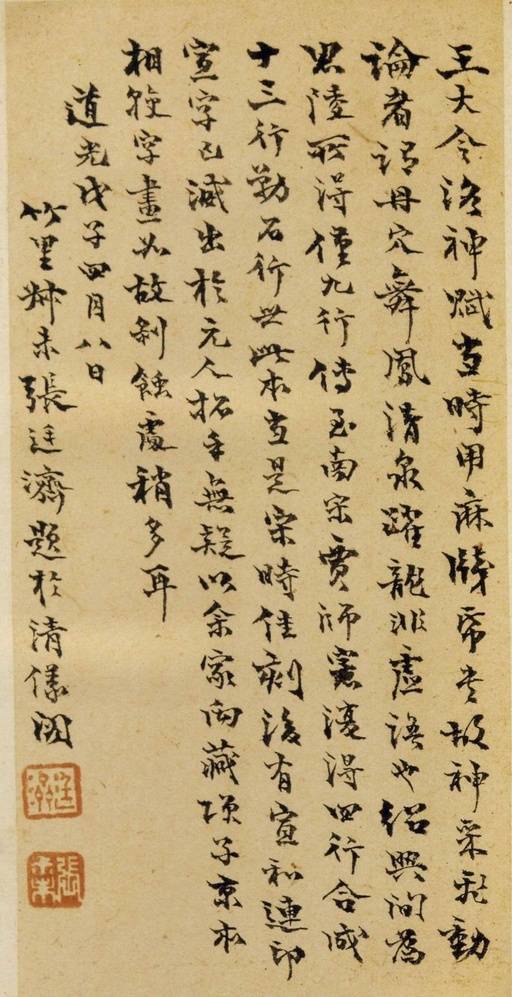 王大令洛神賦當時用麻牋帋書故神采飛動
論者謂丹穴舞鳳清泉躍龍非虛語也紹興間為
思陵所得僅九行傳至南宋賈師憲復得四行合成
十三行勒石行世此本當是宋時佳刻後有宣和連印
宣字已減出於元人拓手無疑以余家向藏項子京本
相較字畫如故剝蝕處稍多耳
道光戊子四月八日
竹里叔未張廷濟題於清儀閣
廷濟
張叔未